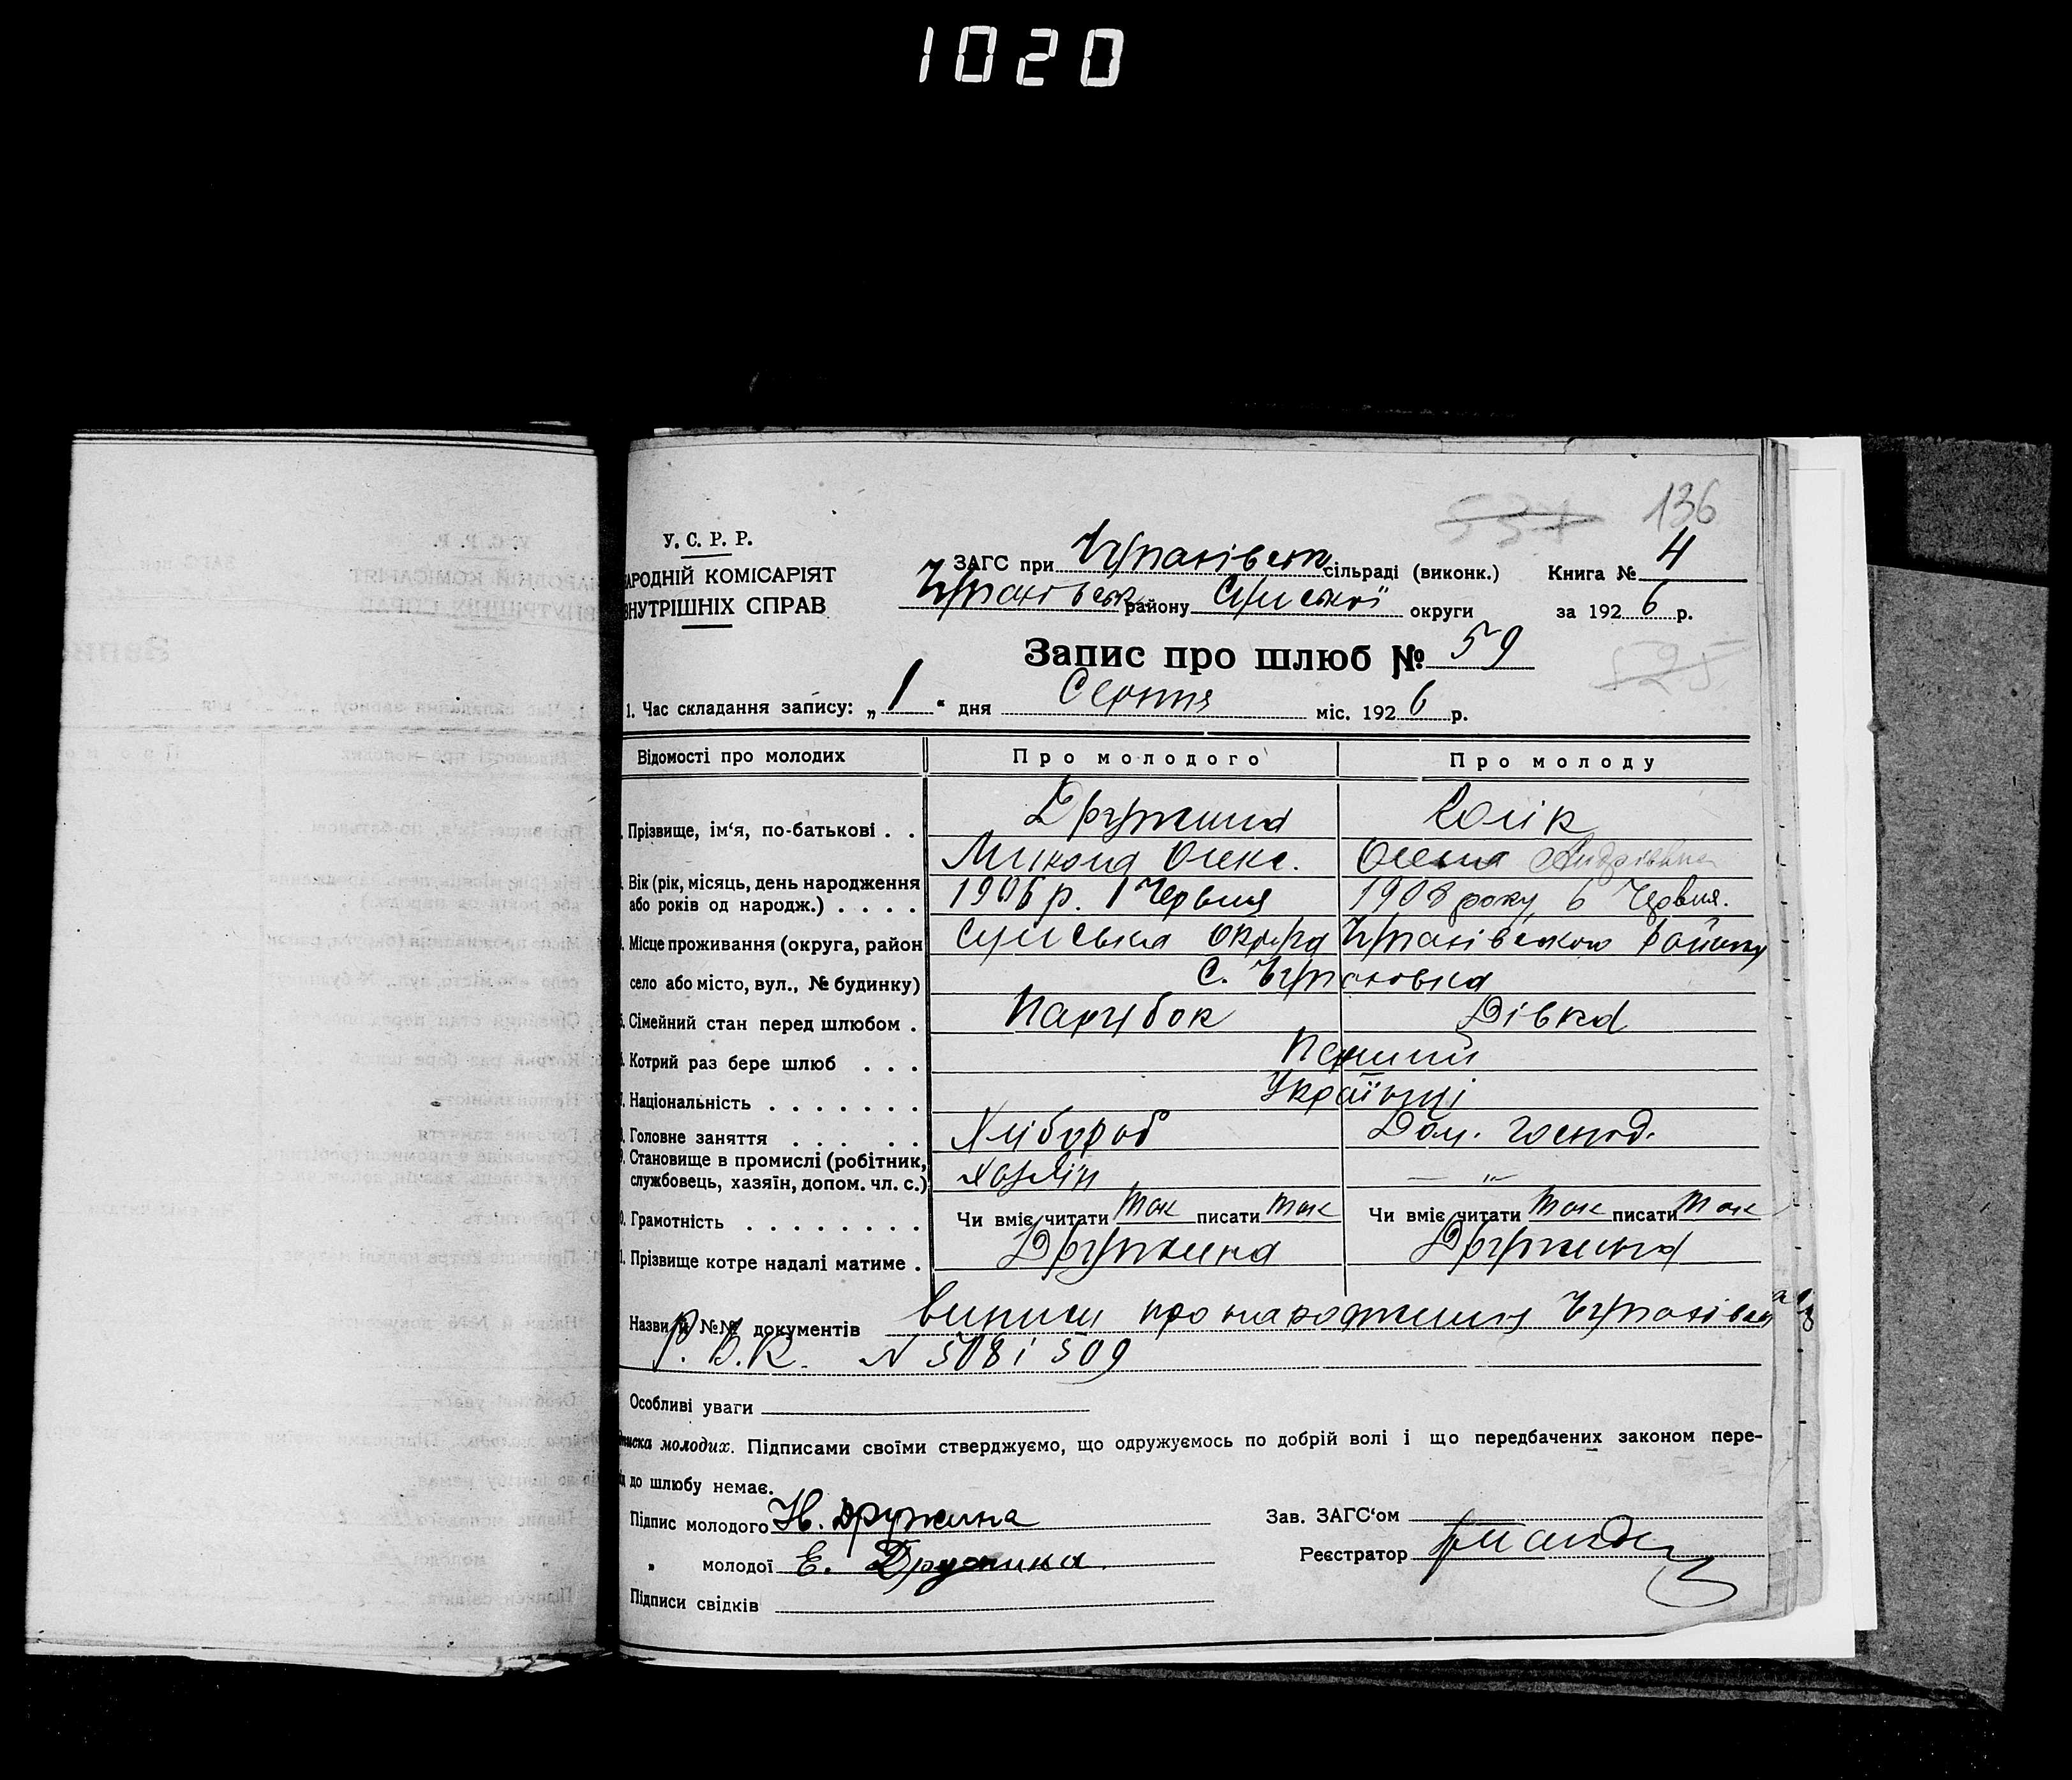 1020
136
У. С. Р. Р.
АРОДНІЙ КОМІСАРІЯТ
ВНУТРІШНІХ СПРАВ
ЗАГС при сільраді (виконк.) Книга № 4
району Сумської округи за 1926 р.
Запис про шлюб № 59
525
1. Час складання запису: „1“ дня Серпня міс. 1926 р.
Відомості про молодих Про молодого Про молоду
Прізвище, ім‘я, по-батькові . . Дружина
Микола Олекс. Олена Андріївна
Вік (рік, місяць, день народження 1906 р. 1 Червня 1908 року 6 Червня.
або років од народж.) . . . .
Місце проживання (округа, район Сумська округа району
село або місто, вул., № будинку) с.
Сімейний стан перед шлюбом . Парубок Дівка
Котрий раз бере шлюб . . . Перший
Національність . . . . . . . Українці
Головне заняття . . . . . Хлібороб Дом. господ.
Становище в промислі (робітник, Хазяїн — „ —
службовець, хазяїн, допом. чл. с.)
Грамотність . . . . . . . . Чи вміє читати так писати так Чи вміє читати так писати так
Прізвище котре надалі матиме . Дружина Дружина
Назви й №№ документів Виписи про народження
Р.В.К. N 508 і 509
Особливі уваги
писка молодих. Підписами своїми стверджуємо, що одружуємось по добрій волі і що передбачених законом пере-
д до шлюбу немає.
Підпис молодого Н. Дружина Зав. ЗАГС‘ом
„ молодої Е. Дружина. Реєстратор
Підписи свідків